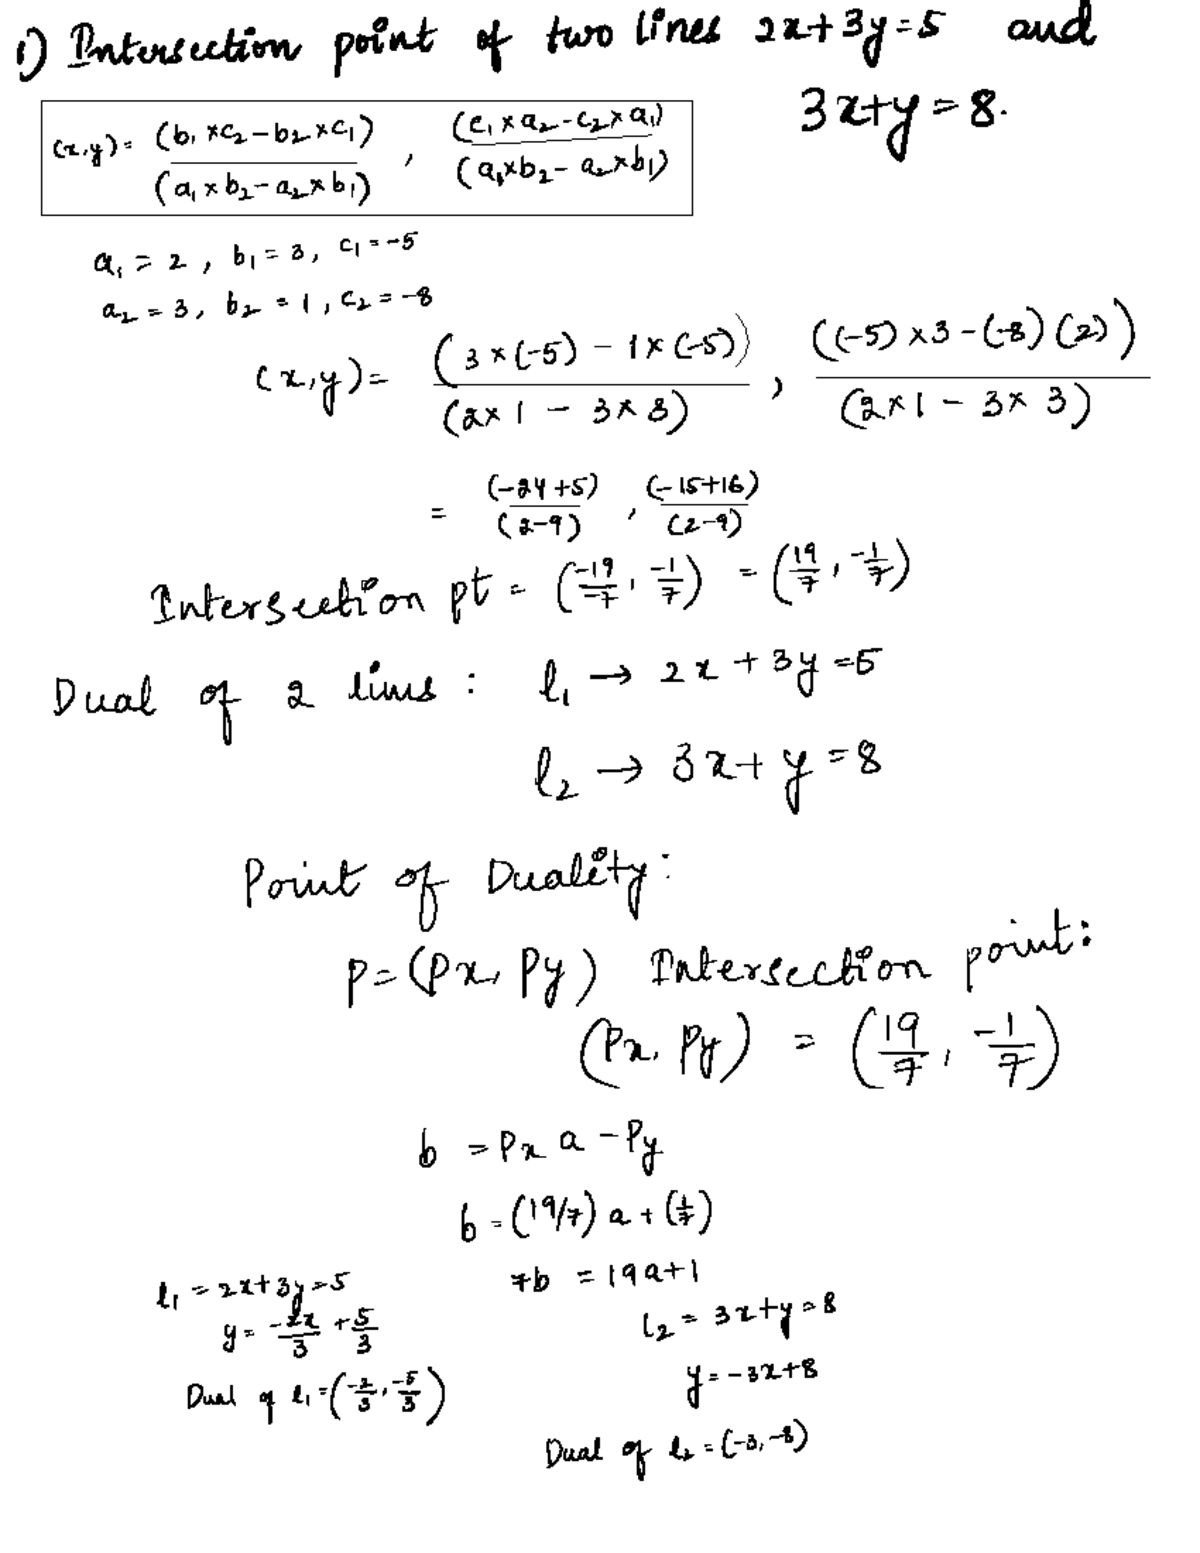 1) Intersection point of two lines 2x+3y=5 and
3x+y=8.
(x,y) = (b₁×c₂-b₂×c₁)/(a₁×b₂-a₂×b₁) , (c₁×a₂-c₂×a₁)/(a₁×b₂-a₂×b₁)
a₁ = 2 , b₁ = 3, c₁ = -5
a₂ = 3, b₂ = 1, c₂ = -8
(x,y) = (3×(-5) - 1×(-5))/(2×1 - 3×3) , ((-5)×3-(-8)(2))/(2×1 - 3×3)
= (-24+5)/(2-9) , (-15+16)/(2-9)
Intersection pt = (-19/-7, -1/7) = (19/7, -1/7)
Dual of 2 lines : l₁ → 2x+3y=5
l₂ → 3x+y=8
Point of Duality:
P=(Px, Py) Intersection point:
(Px, Py) = (19/7, -1/7)
b = Px a - Py
b = (19/7) a + (1/7)
7b = 19a+1
l₁ = 2x+3y=5
y = -2x/3 + 5/3
Dual of l₁ = (-2/3, -5/3)
l₂ = 3x+y=8
y = -3x+8
Dual of l₂ = (-3,-8)